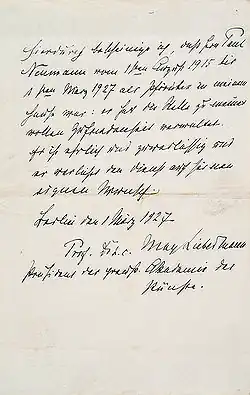 Hierdurch bescheinige ich, daß Herr Paul
Neumann vom 1sten August 1915 bis
1sten März 1927 als Portier in meinem
Hause war: er hat die Stelle zu meiner
vollen Zufriedenheit verwaltet.
Er ist ehrlich und zuverlässig und
er verläßt den Dienst auf seinen
eignen Wunsch.
Berlin den 1 März 1927.
Prof. Max Liebermann
Präsident der preuß. Akademie der
Künste.